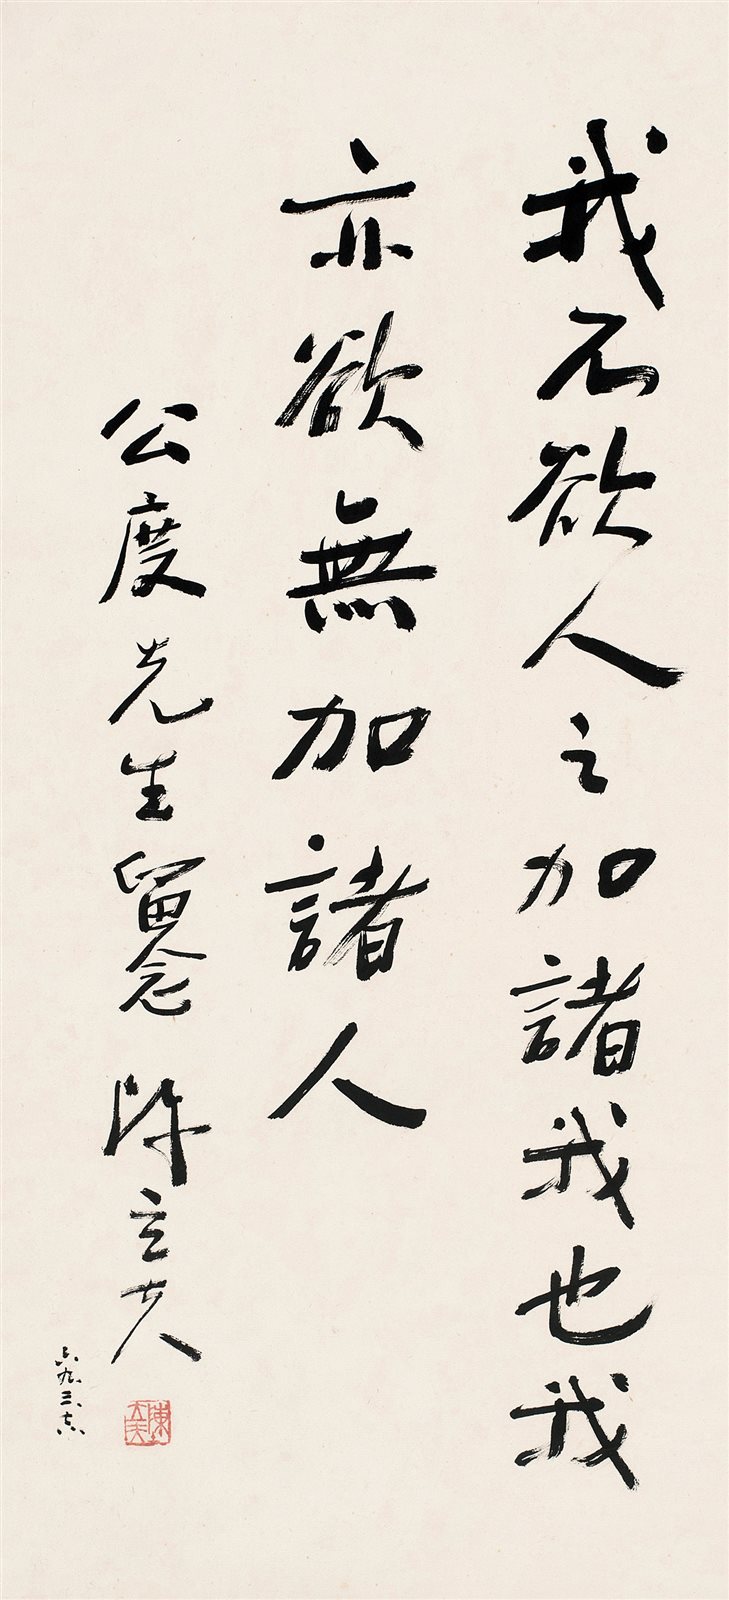 我不欲人之加諸我也我
亦欲無加諸人
公度先生留念 陳立夫
六九、三、
陳立夫